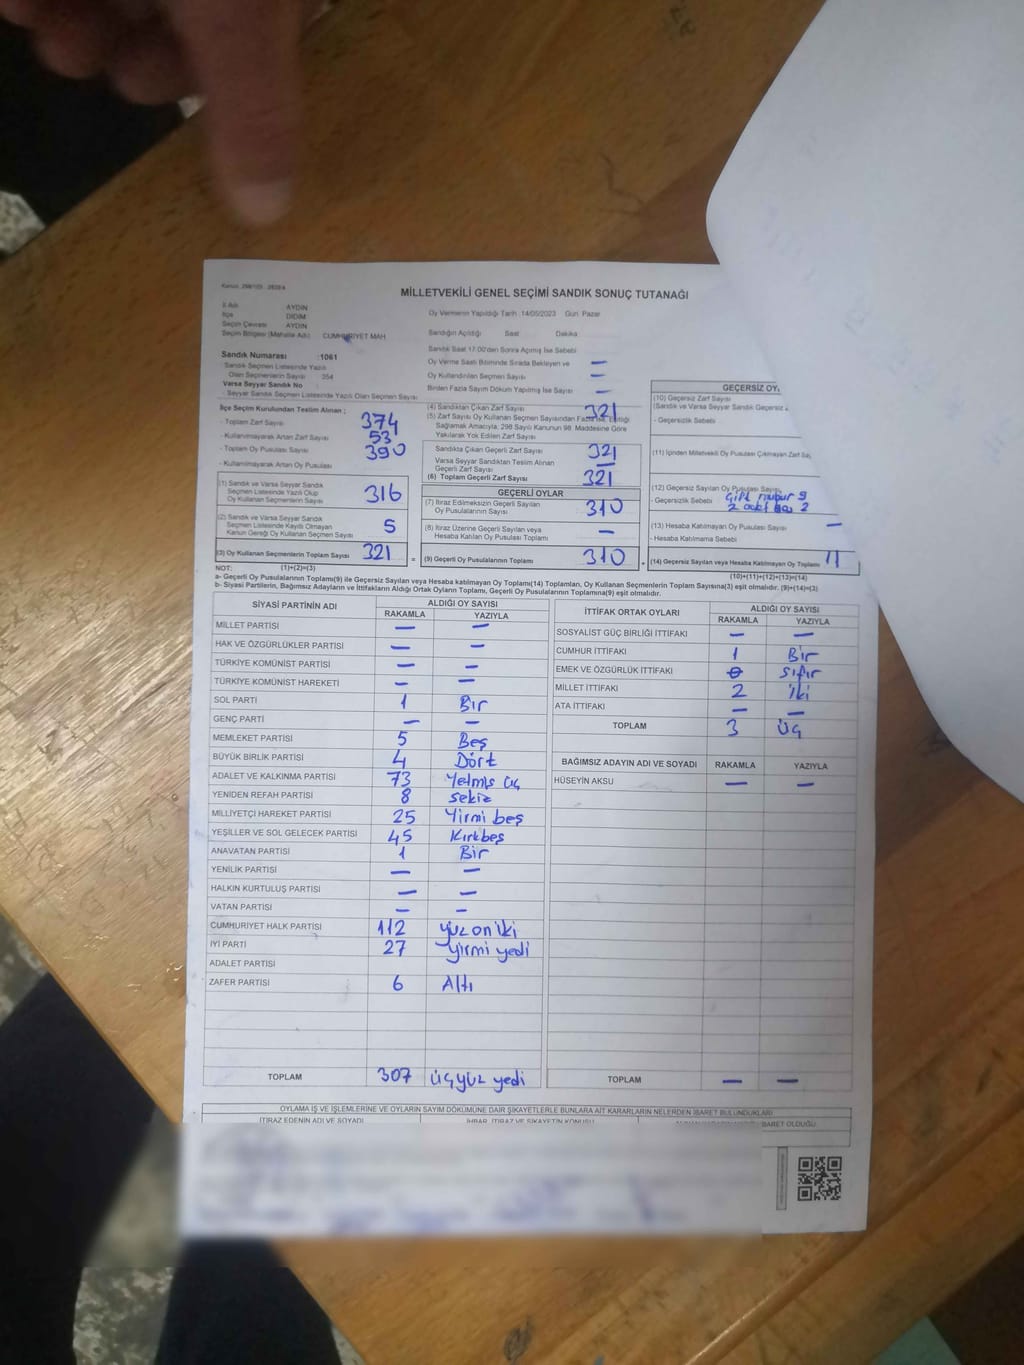 MİLLETVEKİLİ GENEL SEÇİMİ SANDIK SONUÇ TUTANAĞI
İl Adı AYDIN
İlçe DİDİM
Seçim Çevresi AYDIN
Seçim Bölgesi (Mahalle Adı) CUMHURİYET MAH
Sandık Numarası :1061
Sandık Seçmen Listesinde Yazılı
Olan Seçmenlerin Sayısı 354
Varsa Seyyar Sandık No
Seyyar Sandık Seçmen Listesinde Yazılı Olan Seçmen Sayısı
Oy Vermenin Yapıldığı Tarih :14/05/2023 Gün: Pazar
Sandığın Açıldığı Saat Dakika
Sandık Saat 17:00'den Sonra Açılmış İse Sebebi
Oy Verme Saati Bitiminde Sırada Bekleyen ve —
Oy Kullandırılan Seçmen Sayısı —
Birden Fazla Sayım Döküm Yapılmış İse Sayısı —
İlçe Seçim Kurulundan Teslim Alınan ;
- Toplam Zarf Sayısı 374
- Kullanılmayarak Artan Zarf Sayısı 53
- Toplam Oy Pusulası Sayısı 390
- Kullanılmayarak Artan Oy Pusulası
(1) Sandık ve Varsa Seyyar Sandık
Seçmen Listesinde Yazılı Olup
Oy Kullanan Seçmenlerin Sayısı 316
(2) Sandık ve Varsa Seyyar Sandık
Seçmen Listesinde Kayıtlı Olmayan
Kanun Gereği Oy Kullanan Seçmen Sayısı 5
(3) Oy Kullanan Seçmenlerin Toplam Sayısı 321
(4) Sandıktan Çıkan Zarf Sayısı 321
(5) Zarf Sayısı Oy Kullanan Seçmen Sayısından Fazla ise, Eşitliği
Sağlamak Amacıyla, 298 Sayılı Kanunun 98. Maddesine Göre
Yakılarak Yok Edilen Zarf Sayısı
Sandıkta Çıkan Geçerli Zarf Sayısı 321
Varsa Seyyar Sandıktan Teslim Alınan
Geçerli Zarf Sayısı —
(6) Toplam Geçerli Zarf Sayısı 321
GEÇERLİ OYLAR
(7) İtiraz Edilmeksizin Geçerli Sayılan
Oy Pusulalarının Sayısı 310
(8) İtiraz Üzerine Geçerli Sayılan veya
Hesaba Katılan Oy Pusulası Toplamı —
= (9) Geçerli Oy Pusulalarının Toplamı 310
GEÇERSİZ OY
(10) Geçersiz Zarf Sayısı
(Sandık ve Varsa Seyyar Sandık Geçersiz
- Geçersizlik Sebebi
(11) İçinden Milletvekili Oy Pusulası Çıkmayan Zarf
(12) Geçersiz Sayılan Oy Pusulası Sayısı
- Geçersizlik Sebebi Çift mühür 9
2 2
(13) Hesaba Katılmayan Oy Pusulası Sayısı —
- Hesaba Katılmama Sebebi
+ (14) Geçersiz Sayılan veya Hesaba Katılmayan Oy Toplamı 11
NOT: (1)+(2)=(3) (10)+(11)+(12)+(13)=(14)
a- Geçerli Oy Pusulalarının Toplamı(9) ile Geçersiz Sayılan veya Hesaba katılmayan Oy Toplamı(14) Toplamları, Oy Kullanan Seçmenlerin Toplam Sayısına(3) eşit olmalıdır. (9)+(14)=(3)
b- Siyasi Partilerin, Bağımsız Adayların ve İttifakların Aldığı Ortak Oyların Toplamı, Geçerli Oy Pusulalarının Toplamına(9) eşit olmalıdır.
SİYASİ PARTİNİN ADI ALDIĞI OY SAYISI
RAKAMLA YAZIYLA
MİLLET PARTİSİ — —
HAK VE ÖZGÜRLÜKLER PARTİSİ — —
TÜRKİYE KOMÜNİST PARTİSİ — —
TÜRKİYE KOMÜNİST HAREKETİ — —
SOL PARTİ 1 Bir
GENÇ PARTİ — —
MEMLEKET PARTİSİ 5 Beş
BÜYÜK BİRLİK PARTİSİ 4 Dört
ADALET VE KALKINMA PARTİSİ 73 Yetmiş üç
YENİDEN REFAH PARTİSİ 8 Sekiz
MİLLİYETÇİ HAREKET PARTİSİ 25 Yirmi beş
YEŞİLLER VE SOL GELECEK PARTİSİ 45 Kırkbeş
ANAVATAN PARTİSİ 1 Bir
YENİLİK PARTİSİ — —
HALKIN KURTULUŞ PARTİSİ — —
VATAN PARTİSİ — —
CUMHURİYET HALK PARTİSİ 112 yüz on iki
İYİ PARTİ 27 yirmi yedi
ADALET PARTİSİ
ZAFER PARTİSİ 6 Altı
TOPLAM 307 üçyüz yedi
İTTİFAK ORTAK OYLARI ALDIĞI OY SAYISI
RAKAMLA YAZIYLA
SOSYALİST GÜÇ BİRLİĞİ İTTİFAKI — —
CUMHUR İTTİFAKI 1 Bir
EMEK VE ÖZGÜRLÜK İTTİFAKI 0 Sıfır
MİLLET İTTİFAKI 2 İki
ATA İTTİFAKI — —
TOPLAM 3 üç
BAĞIMSIZ ADAYIN ADI VE SOYADI RAKAMLA YAZIYLA
HÜSEYİN AKSU — —
TOPLAM — —
OYLAMA İŞ VE İŞLEMLERİNE VE OYLARIN SAYIM DÖKÜMÜNE DAİR ŞİKAYETLERLE BUNLARA AİT KARARLARIN NELERDEN İBARET BULUNDUKLARI
İTİRAZ EDENİN ADI VE SOYADI İHBAR, İTİRAZ VE ŞİKAYETİN KONUSU İBARET OLDUĞU